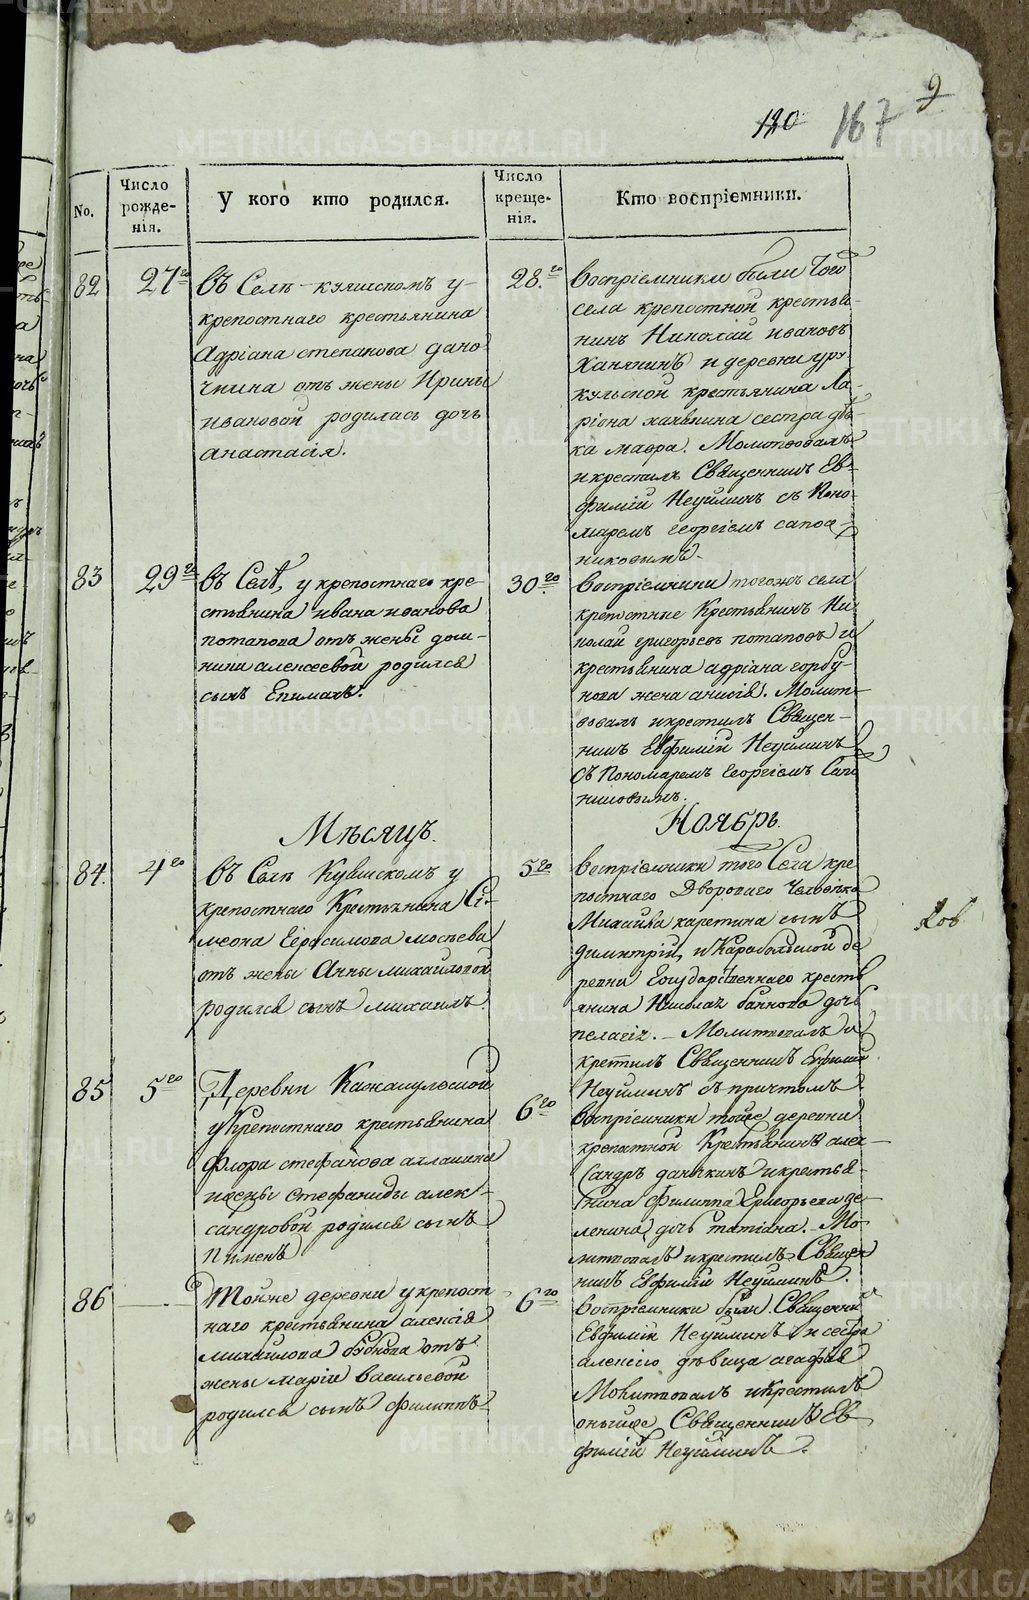 9
120
167
No.
Число рожденія.
У кого кто родился.
Число крещенія.
Кто воспріемники.
82
27го
въ Селѣ Куяшскомъ у
крепостнаго крестьянина
Адріана степанова дано-
чкина отъ жены Ирины
ивановой родилась дочь
анастасія.
28.го
воспріемники были того
села крепостной крестья-
нинъ Николай ивановъ
Ханянинъ и деревни ур-
кульской крестьянина Ла-
ріона сестра дѣв-
ка мавра. Молитвовалъ
и крестилъ Священникъ Ев-
фимій Неуйминъ съ Поно-
маремъ Георгіемъ сапож-
никовымъ.
83
29го
въ Селѣ, у крепостнаго кре-
стьянина ивана иванова
потапова отъ жены дом-
ники алексеевой родился
сынъ Епимахъ.
30го
воспріемники тогожъ села
крепостные Крестьянинъ Ни-
колай григорьевъ потаповъ и
крестьянина адріана горбу-
нова жена анисія. Молит-
вовалъ и крестилъ Священ-
никъ Евфимій Неуйминъ
съ Пономаремъ Георгіемъ Сапо
никовымъ.
Мѣсяцъ.
Ноябрь.
84.
4го
въ Селѣ Куяшскомъ у
крепостнаго Крестьянина Сі-
меона Герасимова мосѣева
отъ жены Анны михайловой
родился сынъ михаилъ.
5го
воспріемники того Села кре
постнаго Двороваго Человѣка
Михайла каретина сынъ
димитрій, и Карабольской де
ревни Государственнаго кресть
янина Николая баннова дочь
пелагія. - Молитвовалъ и
крестилъ Священникъ Евфимій
Неуйминъ съ причтомъ.
85
5го
Деревни
у крепостнаго крестьянина
Флора стефанова
жены Стефаниды алек-
сандровой родился сынъ
Пименъ
6го
воспріемники тойже деревни
крепостной Крестьянинъ алек-
сандръ даночкинъ и крестья-
нина Филиппа Григорьева де-
ленина дочь татіана. - Мо-
литвовалъ и крестилъ Священ
никъ Евфимій Неуйминъ.
86
Тойже деревни у крепост
наго крестьянина алексія
михайлова отъ
жены маріи васильевой
родился сынъ филиппъ
6го
Воспріемники были Священникъ
Евфимій Неуйминъ и сестра
алексію дѣвица агафія
Молитвовалъ и крестилъ
оныйже Священникъ Ев-
фимій Неуйминъ.
METRIKI.GASO-URAL.RU